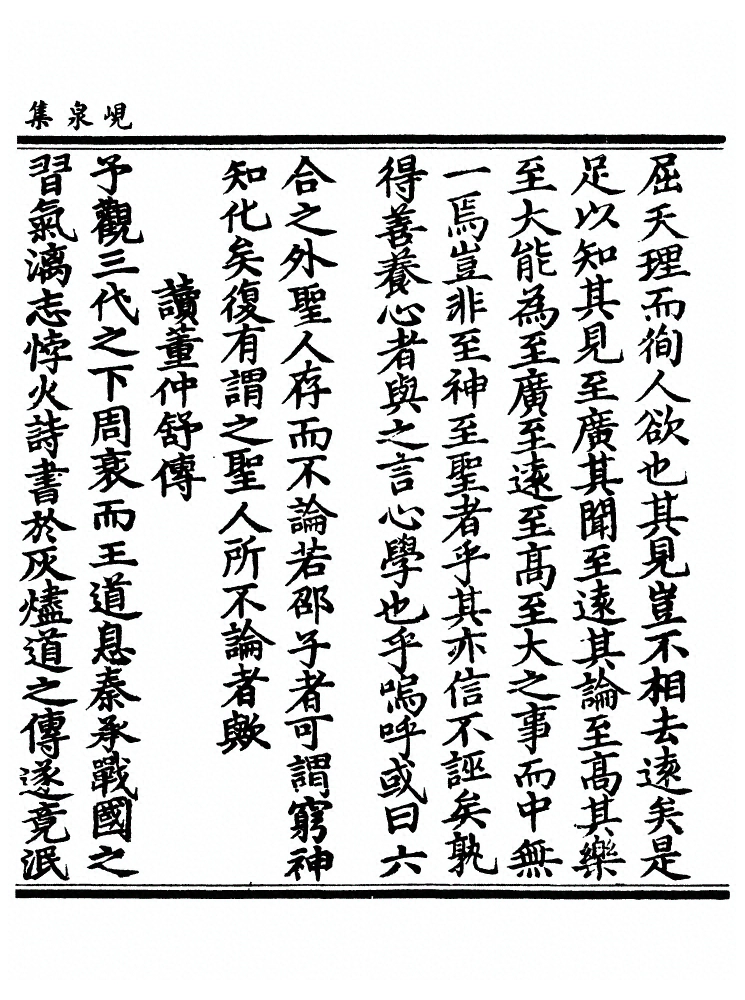 峴泉集
屈天理而徇人欲也其見豈不相去逺矣是
足以知其見至廣其聞至逺其論至髙其樂
至大能為至廣至逺至髙至大之事而中無
一焉豈非至神至聖者乎其亦信不誣矣孰
得善養心者與之言心學也乎嗚呼或曰六
合之外聖人存而不論若邵子者可謂窮神
知化矣復有謂之聖人所不論者歟
讀董仲舒傳
予觀三代之下周衰而王道息秦承戰國之
習氣漓志悖火詩書於灰燼道之傳遂竟泯